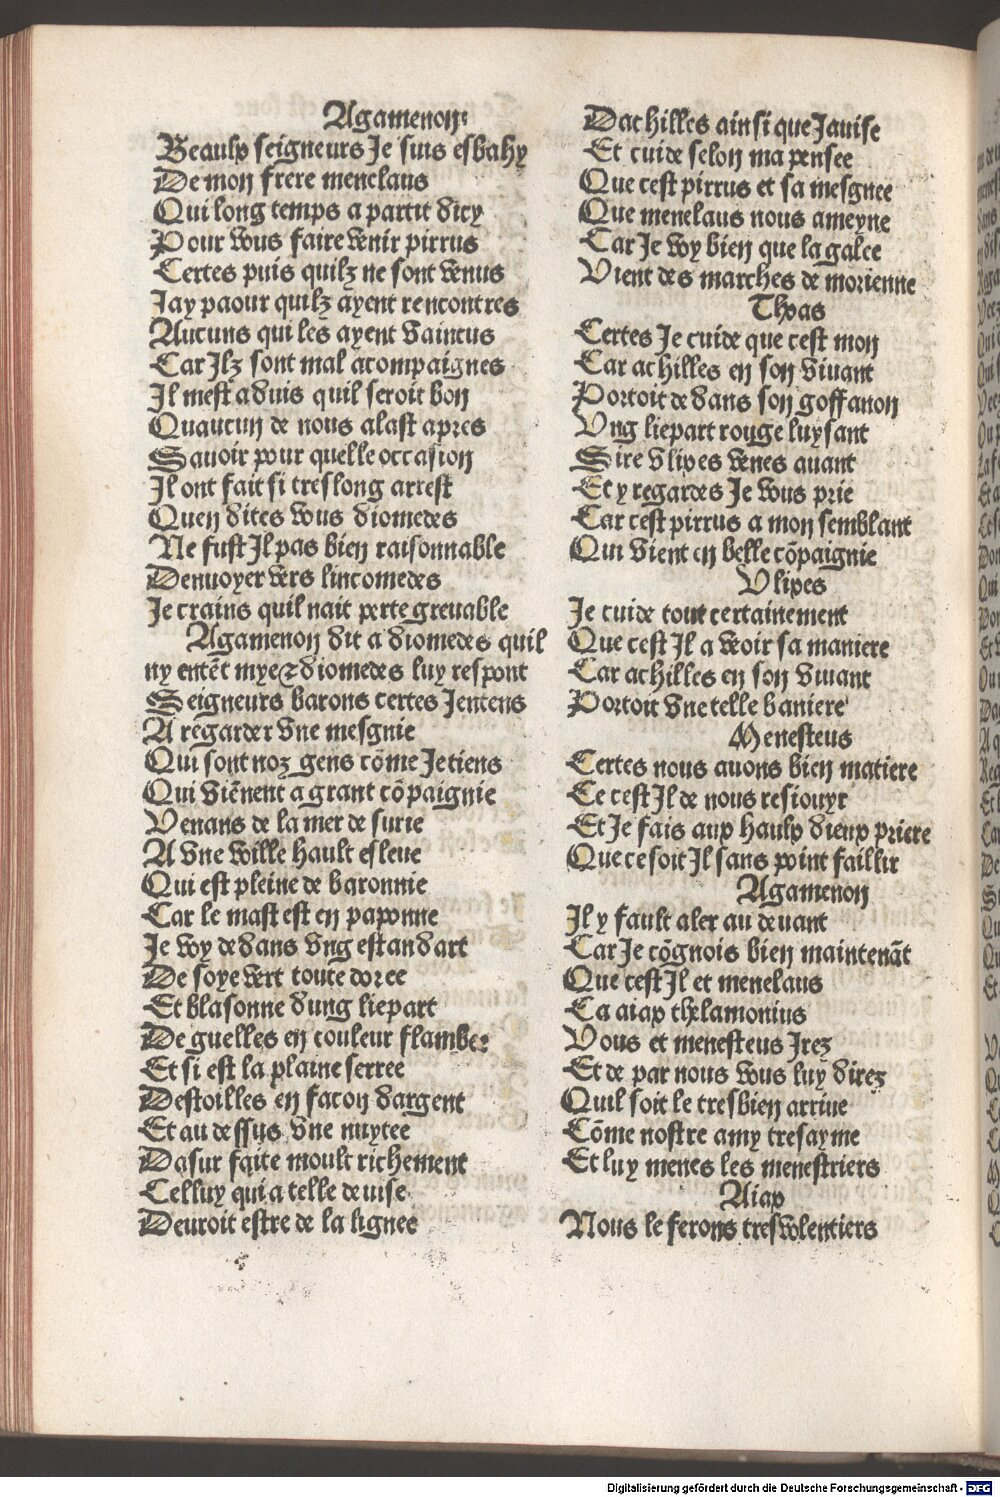 Agamenon
Beaulx seigneurs Je suis esbahy
De mon frere menelaus
Qui long temps a partit dicy
Pour vous faire venir pirrus
Certes puis quilz ne sont venus
Jay paour quilz ayent rencontres
Aucuns qui les ayent vaincus
Car Ilz sont mal acompaignes
Il mest aduis quil seroit bon
Quaucun de nous alast apres
Sauoir pour quelle occasion
Il ont fait si treslong arrest
Quen dites vous diomedes
Ne fust Il pas bien raisonnable
Denuoyer vers lincomedes
Je crains quil nait perte greuable
Agamenon dit a diomedes quil
ny entēt mye ⁊ diomedes luy respont
Seigneurs barons certes Jentens
A regarder vne mesgnie
Qui sont noz gens cōme Je tiens
Qui viēnent a grant cōpaignie
Venans de la mer de surie
A vne wille hault esleue
Qui est pleine de baronnie
Car le mast est en paponne
Je voy dedans vng estandart
De soye vert toute doree
Et blasonne dung liepart
De guelles en couleur flambee
Et si est la plaine serree
Destoilles en facon dargent
Et au dessus vne nuytee
Dasur faite moult richement
Celluy qui a telle deuise
Deuroit estre de la lignee
Dachilles ainsi que Jauise
Et cuide selon ma pensee
Que cest pirrus et sa mesgnee
Que menelaus nous ameyne
Car Je voy bien que la galee
Vient des marches de morienne
Thoas
Certes Je cuide que cest mon
Car achilles en son viuant
Portoit dedans son goffanon
Vng liepart rouge luysant
Sire vlixes venes auant
Et y regardes Je vous prie
Car cest pirrus a mon semblant
Qui vient en belle cōpaignie
Vlixes
Je cuide tout certainement
Que cest Il a veoir sa maniere
Car achilles en son viuant
Portoit vne telle baniere
Menesteus
Certes nous auons bien matiere
Ce cest Il de nous resiouyr
Et Je fais aux haulx dieux priere
Que ce soit Il sans point faillir
Agamenon
Il y fault aler au deuant
Car Je cōgnois bien maintenāt
Que cest Il et menelaus
Ca aiax thelamonius
Vous et menesteus Irez
Et de par nous vous luy direz
Quil soit le tresbien arriue
Cōme nostre amy tresayme
Et luy menes les menestriers
Aiax
Nous le ferons tresvolentiers
Digitalisierung gefördert durch die Deutsche Forschungsgemeinschaft - DFG